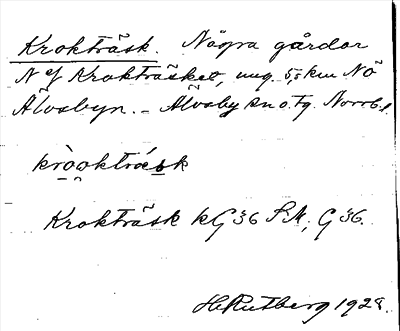 Krokträsk. Några gårdar
N of Krokträsket, ung. 5,5 km NÖ
Älvsbyn. – Älvsby sn o. tg. Norrb. l.
kròokträsk
Krokträsk kG 36 SM, G 36.
H Rutberg 1928.